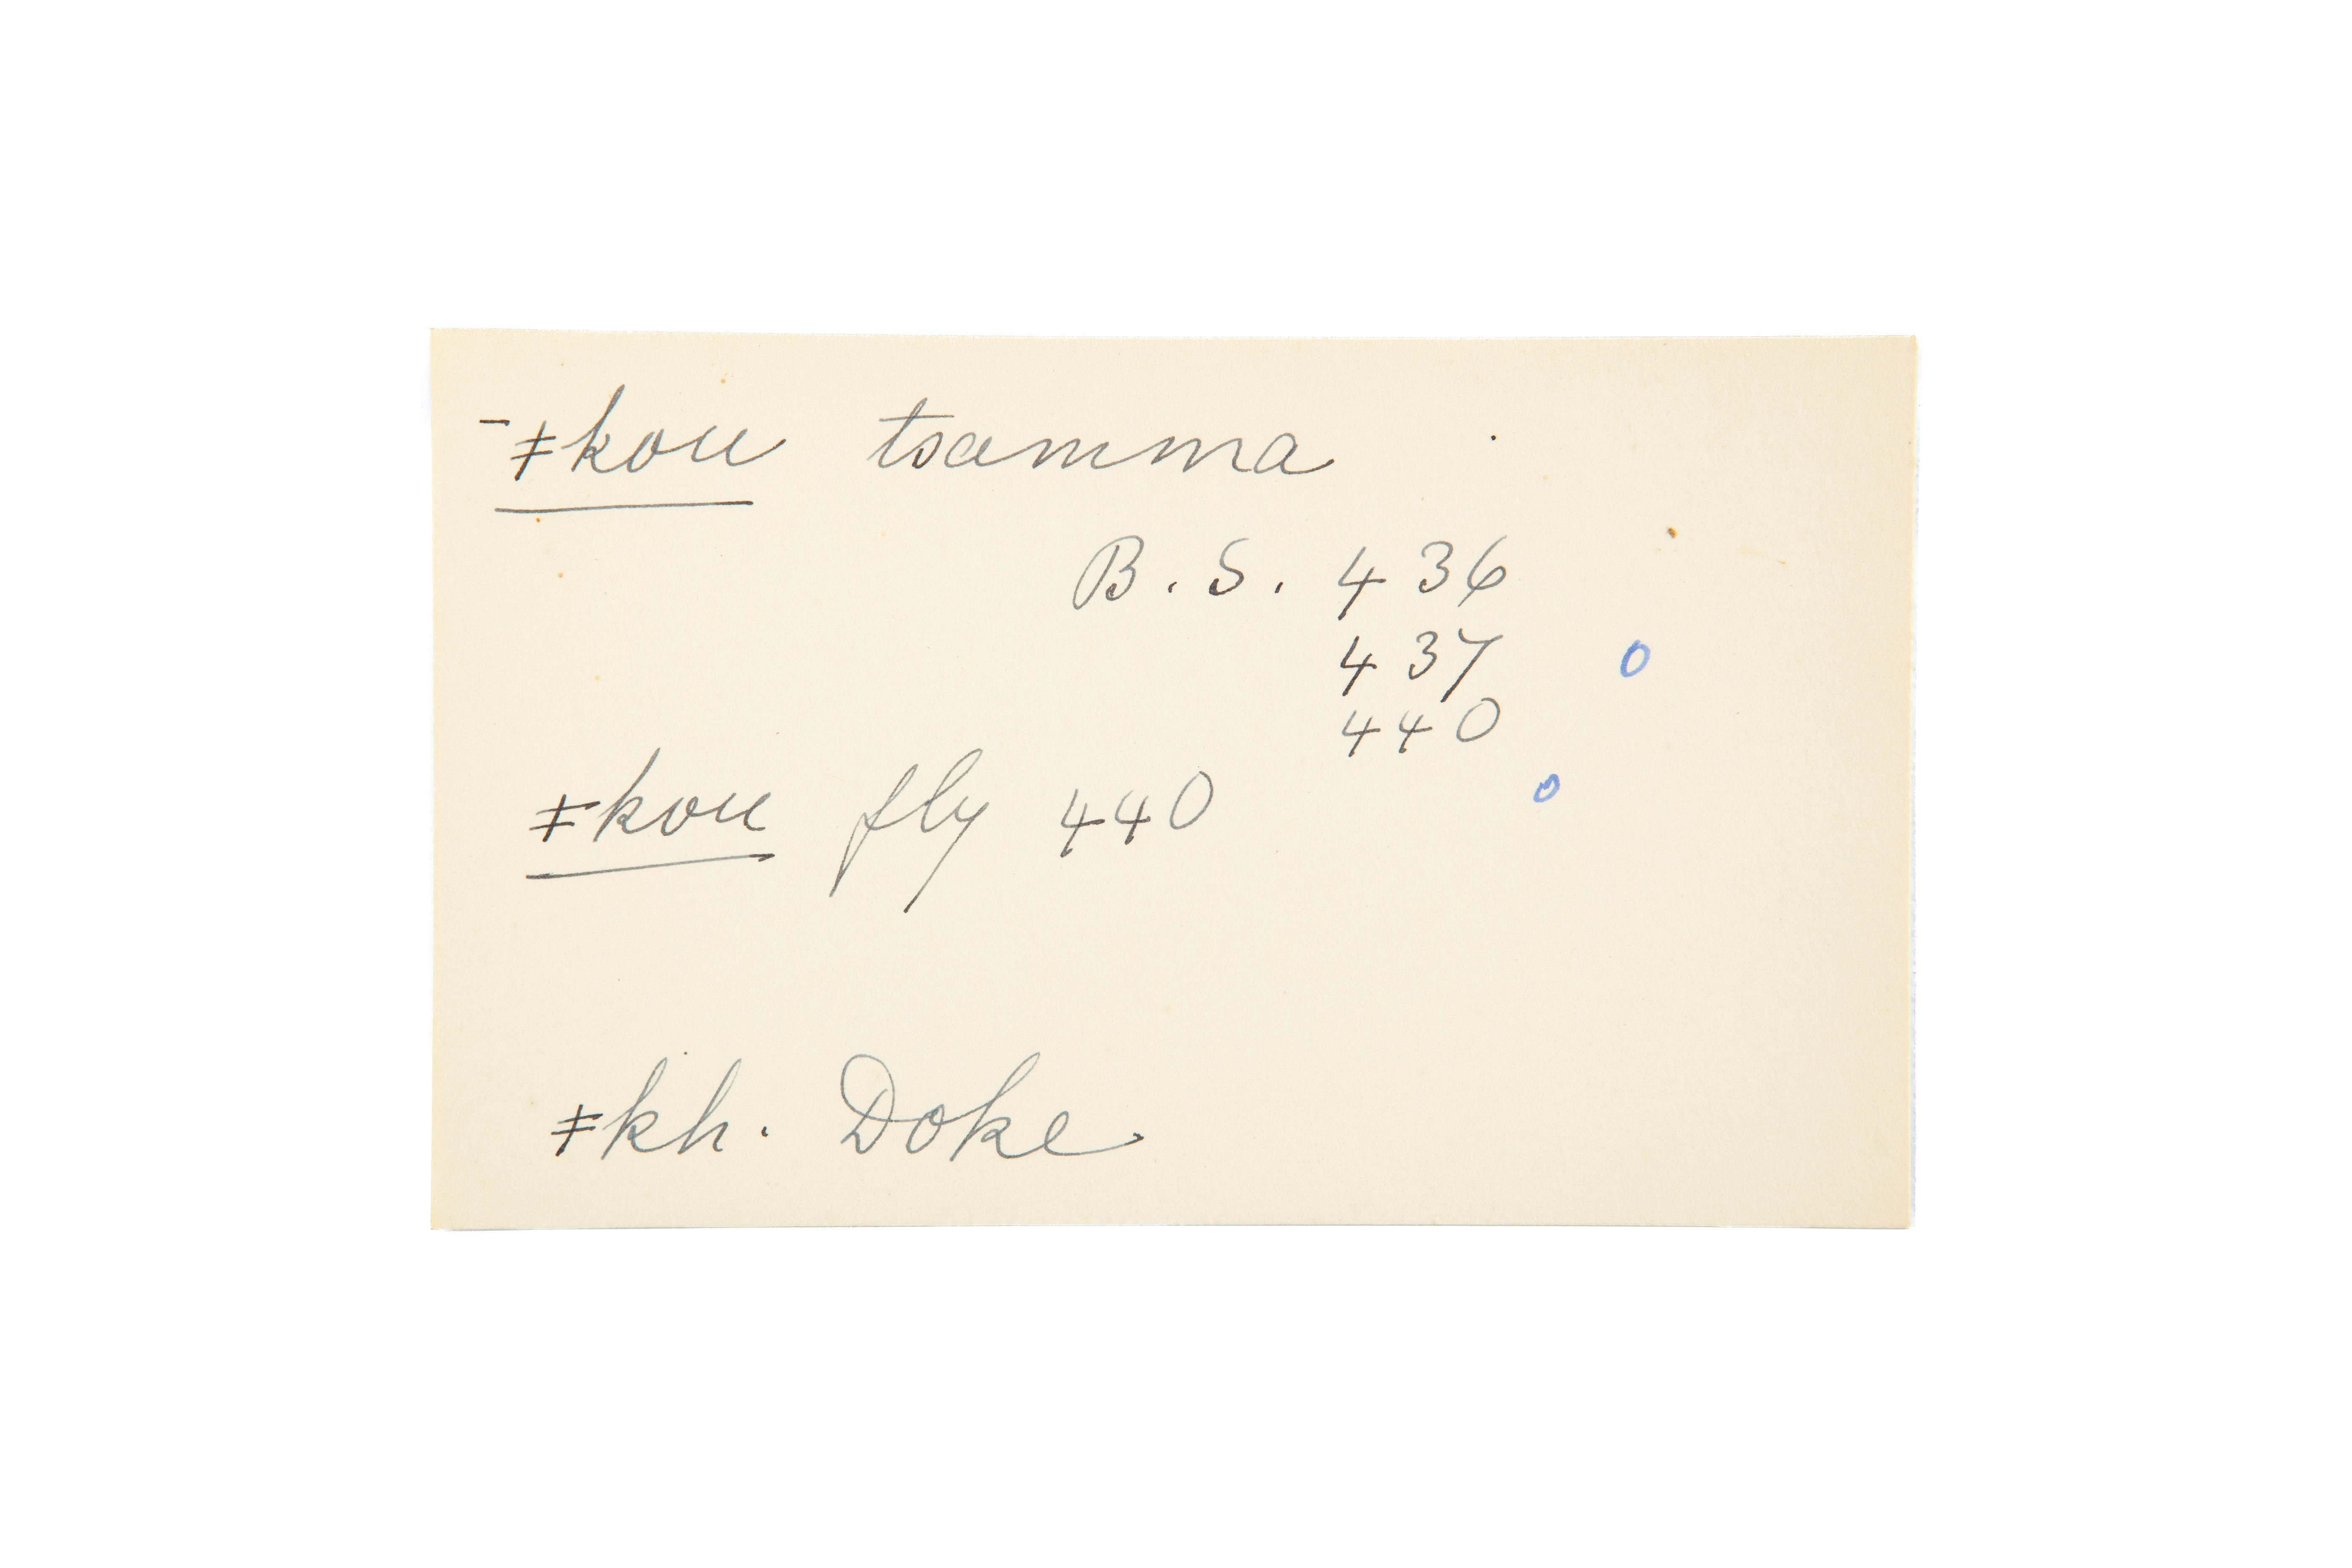 ˉǂkou tsamma
B. S. 436
437 o
440
ǂkou fly 440 o
ǂkh. Doke